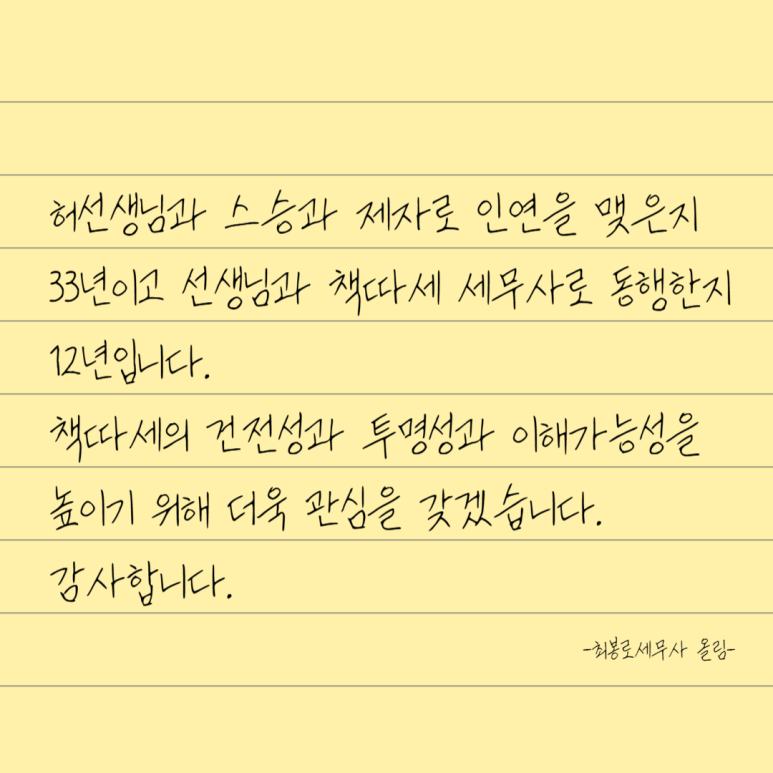 허선생님과 스승과 제자로 인연을 맺은지
33년이고 선생님과 책따세 세무사로 동행한지
12년입니다.
책따세의 건전성과 투명성과 이해가능성을
높이기 위해 더욱 관심을 갖겠습니다.
감사합니다.
-최봉로세무사 올림-